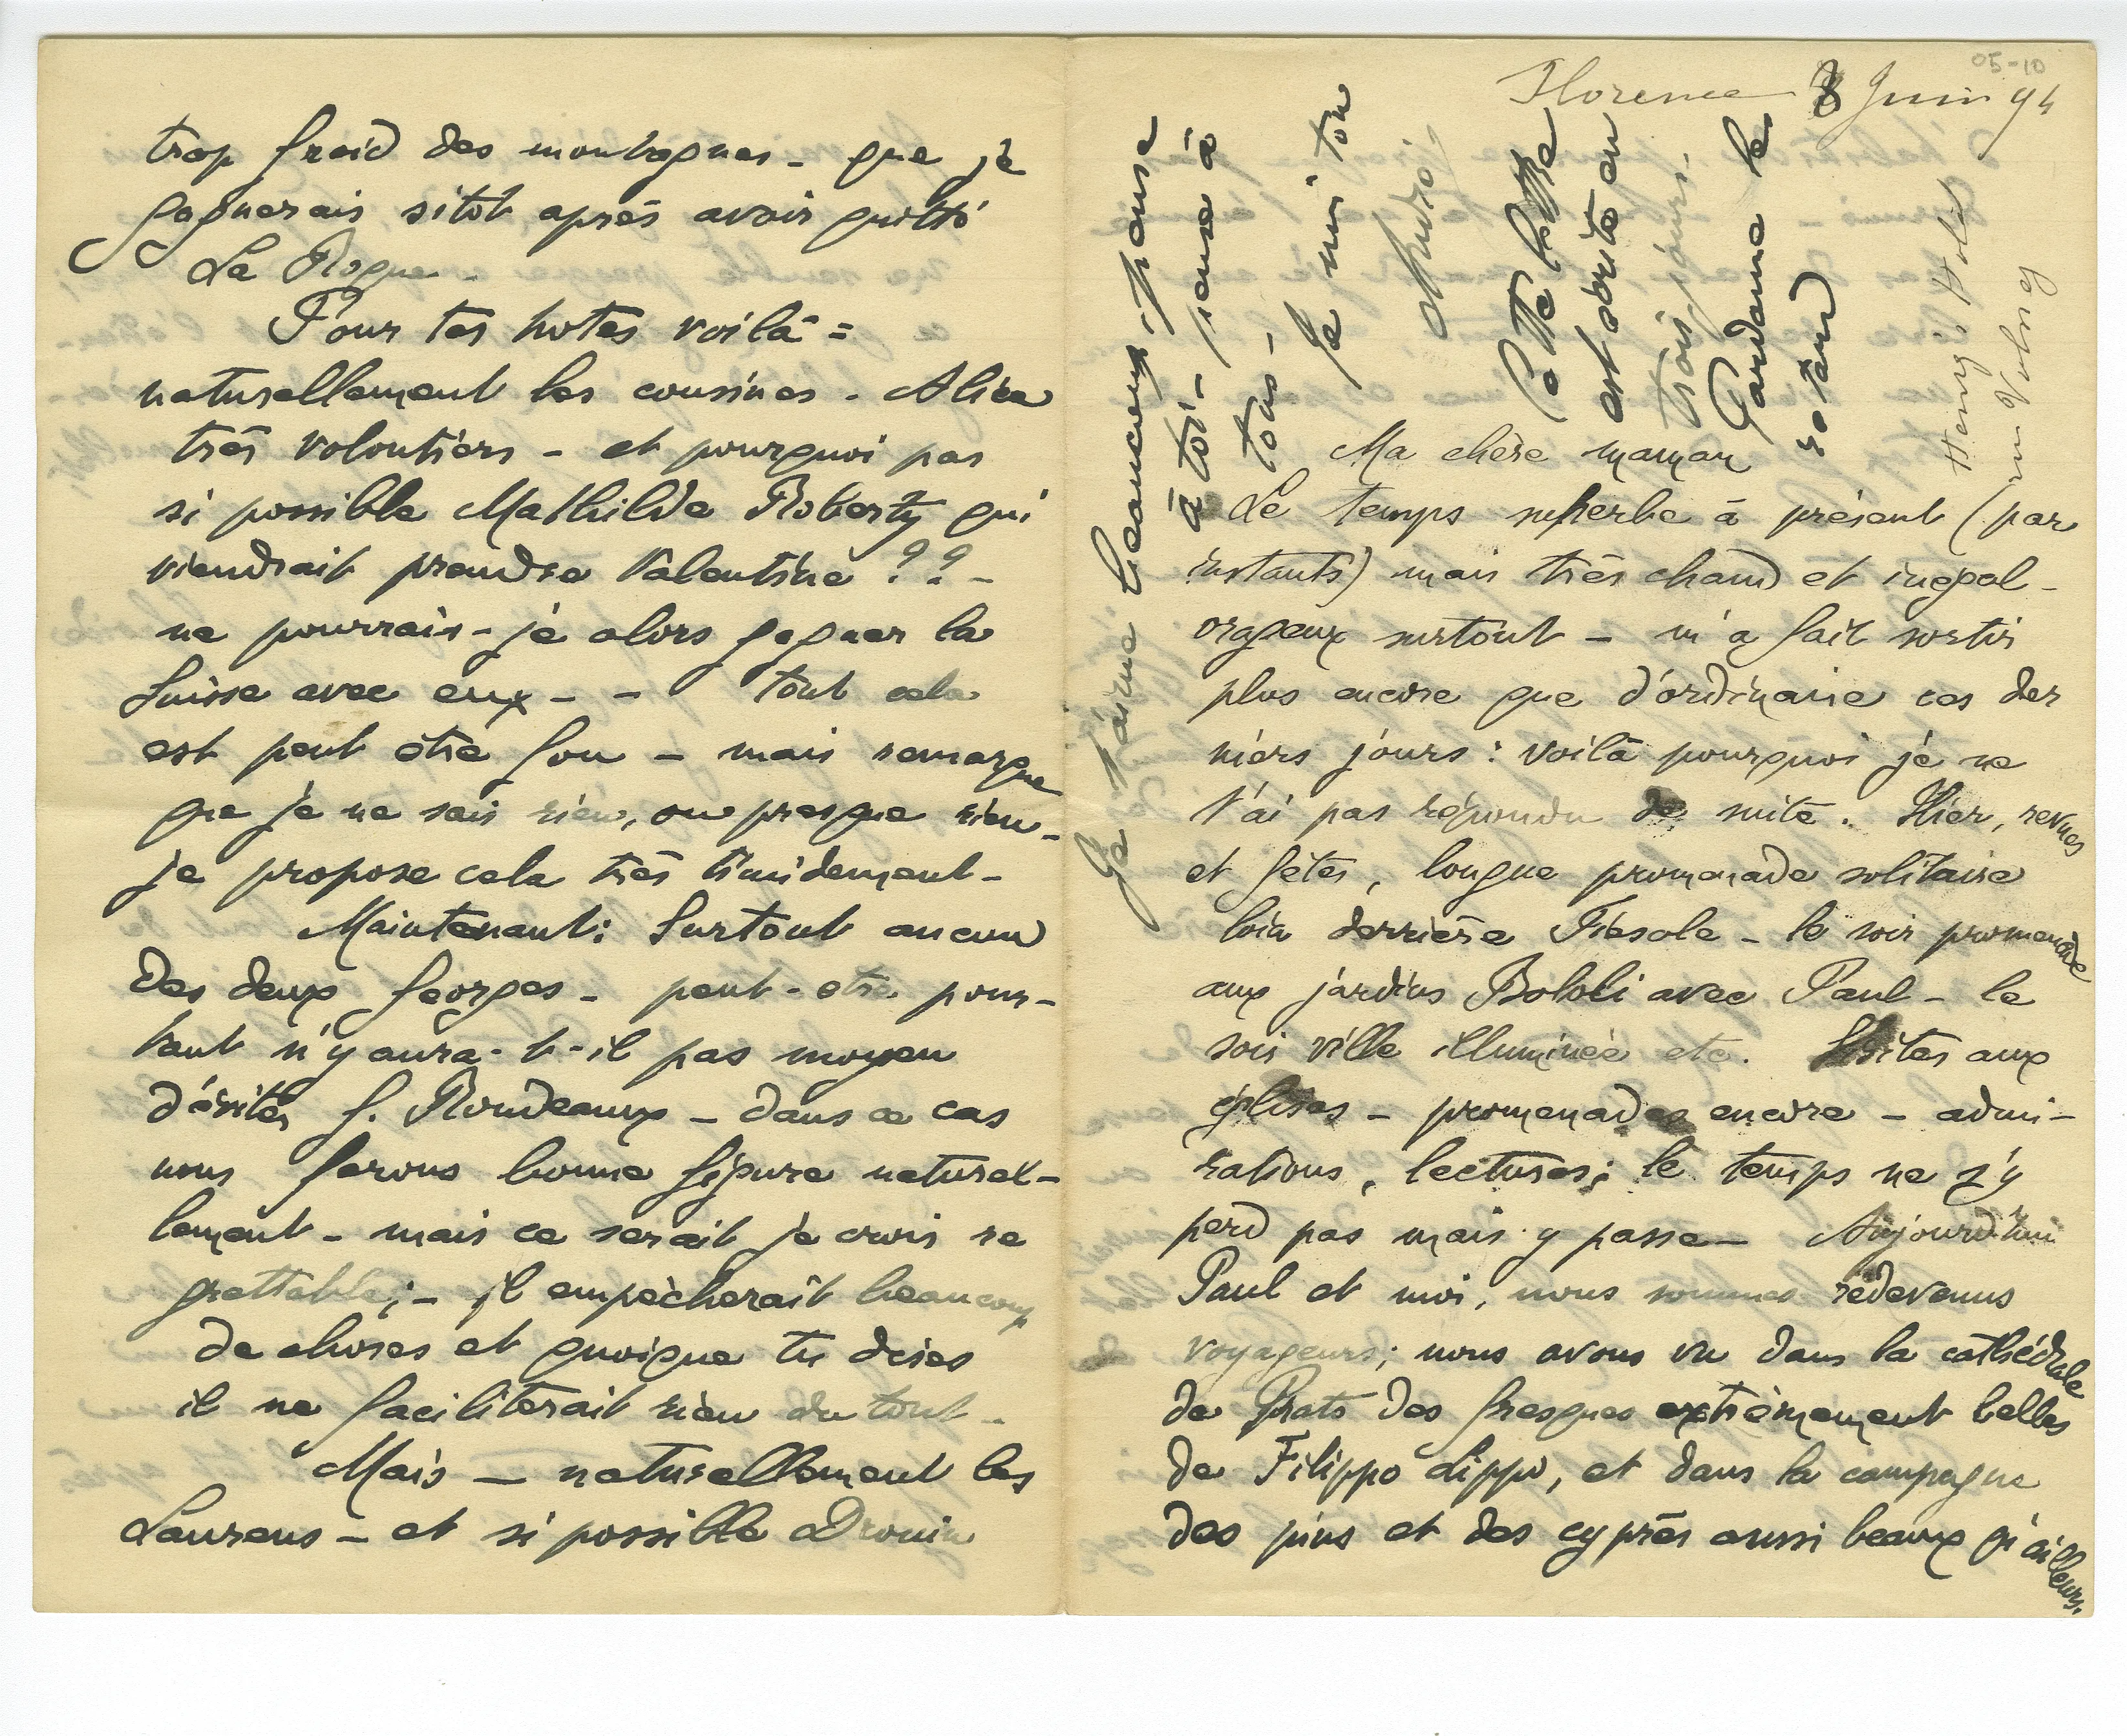 05-10
Florence 8 Juin 94
Ma chère maman
Le temps superbe à présent (par
instants) mais très chaud et inégal -
orageux surtout - m'a fait sortir
plus encore que d'ordinaire ces der
niers jours : voilà pourquoi je ne
t'ai pas répondu de suite. Hier, revues
et fêtes, longue promenade solitaire
loin derrière Fiesole - le soir promenade
aux jardins Boboli avec Paul - le
soir ville illuminée etc. Visites aux
églises - promenades encore - admi-
rations, lectures; le temps ne s'y
perd pas mais y passe - Aujourd'hui
Paul et moi, nous sommes redevenus
voyageurs; nous avons vu dans la cathédrale
de Prato des fresques extrêmement belles
de Filippo Lippi, et dans la campagne
des pins et des cyprès aussi beaux qu'ailleurs.
Je t'aime beaucoup, pense
à toi - pense à
tous -
Je suis ton
André
Cette lettre
est écrite en
trois jours -
Pardonne le
retard
Henry's Hotel
rue Volney
trop froid des montagnes - que je
gagnerais sitôt après avoir quitté
La Roque -
Pour tes hotes voilà =
naturellement les cousines - Alice
très volontiers - et pourquoi pas
si possible Mathilde Roberty qui
viendrait prendre Valentine ?? -
ne pourrais-je alors gagner la
Suisse avec eux - - tout cela
est peut être fou - mais remarque
que je ne sais rien, ou presque rien -
je propose cela très timidement -
Maintenant: Surtout aucun
des deux Georges - peut-etre pour-
tant n'y aura-t-il pas moyen
d'éviter G. Rondeaux - dans ce cas
nous ferons bonne figure naturel-
lement - mais ce serait je crois re
grettable; - il empêcherait beaucoup
de choses et quoique tu dises
il ne faciliterait rien du tout -
Mais - naturellement les
Laurens - et si possible Drouin